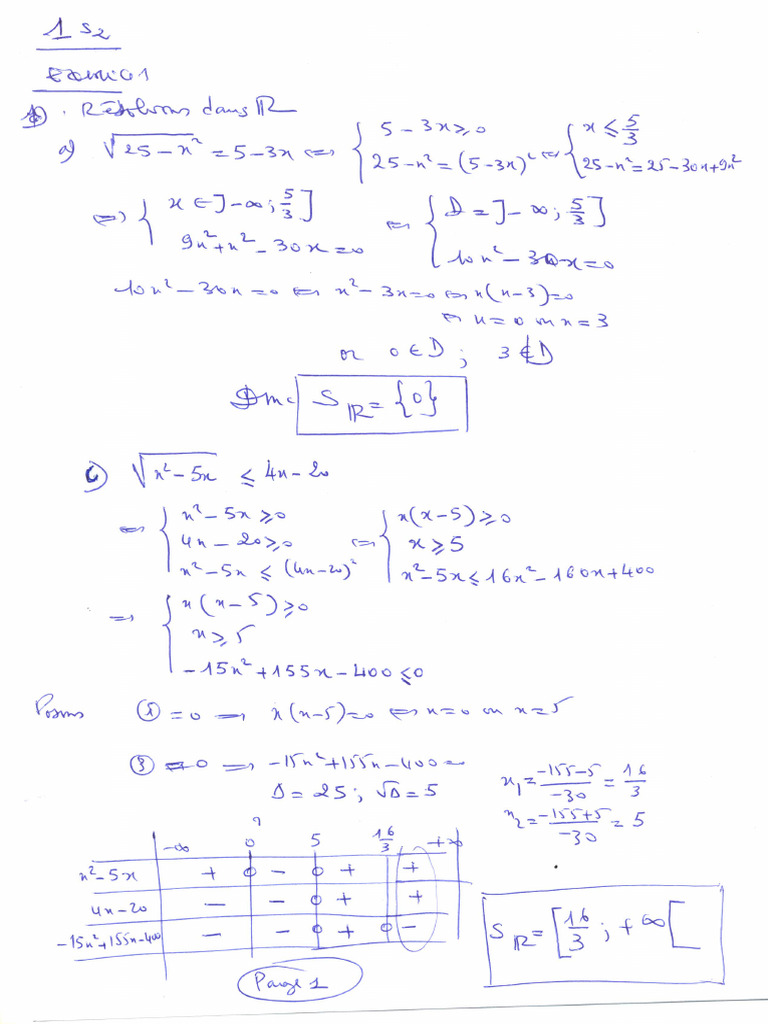 1 S2
Exercice 1
1) . Résolvons dans ℝ
a) √(25 − x²) = 5 − 3x ⇔ { 5 − 3x ≥ 0 ; 25 − x² = (5 − 3x)² ⇔ { x ≤ 5/3 ; 25 − x² = 25 − 30x + 9x²
⇔ { x ∈ ]−∞ ; 5/3] ; 9x² + x² − 30x = 0 ⇔ { D = ]−∞ ; 5/3] ; 10x² − 30x = 0
10x² − 30x = 0 ⇔ x² − 3x = 0 ⇔ x(x − 3) = 0
⇔ x = 0 ou x = 3
or 0 ∈ D ; 3 ∉ D
Donc S_ℝ = {0}
c) √(x² − 5x) ≤ 4x − 20
⇔ { x² − 5x ≥ 0 ; 4x − 20 ≥ 0 ; x² − 5x ≤ (4x − 20)² ⇔ { x(x − 5) ≥ 0 ; x ≥ 5 ; x² − 5x ≤ 16x² − 160x + 400
⇒ { x(x − 5) ≥ 0 ; x ≥ 5 ; −15x² + 155x − 400 ≤ 0
Posons ① = 0 ⇒ x(x − 5) = 0 ⇔ x = 0 ou x = 5
③ = 0 ⇒ −15x² + 155x − 400 =
Δ = 25 ; √Δ = 5
x₁ = (−155 − 5)/(−30) = 16/3
x₂ = (−155 + 5)/(−30) = 5
−∞ 0 5 16/3 +∞
x² − 5x + 0 − 0 + +
4x − 20 − − 0 + +
−15x² + 155x − 400 − − 0 + 0 −
S_ℝ = [16/3 ; +∞[
Page 1